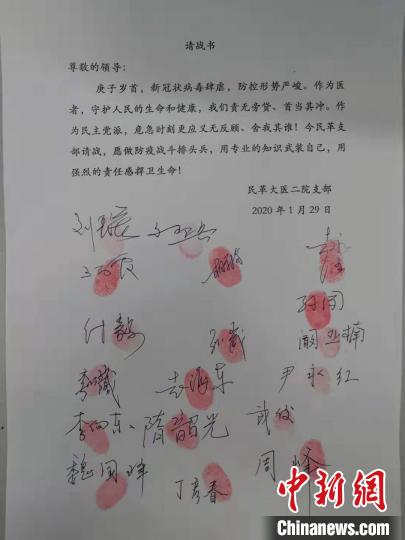 请战书
尊敬的领导：
庚子岁首，新冠状病毒肆虐，防控形势严峻。作为医
者，守护人民的生命和健康，我们责无旁贷、首当其冲。作
为民主党派，危急时刻更应义无反顾、舍我其谁！今民革支
部请战，愿做防疫战斗排头兵，用专业的知识武装自己，用
强烈的责任感捍卫生命！
民革大医二院支部
2020 年 1 月 29 日
付毅
阚亚楠
袁海东 尹永红
李向东、隋韶光 武俊
魏国峰 丁彦春 周峰
中新网
www.chinanews.com